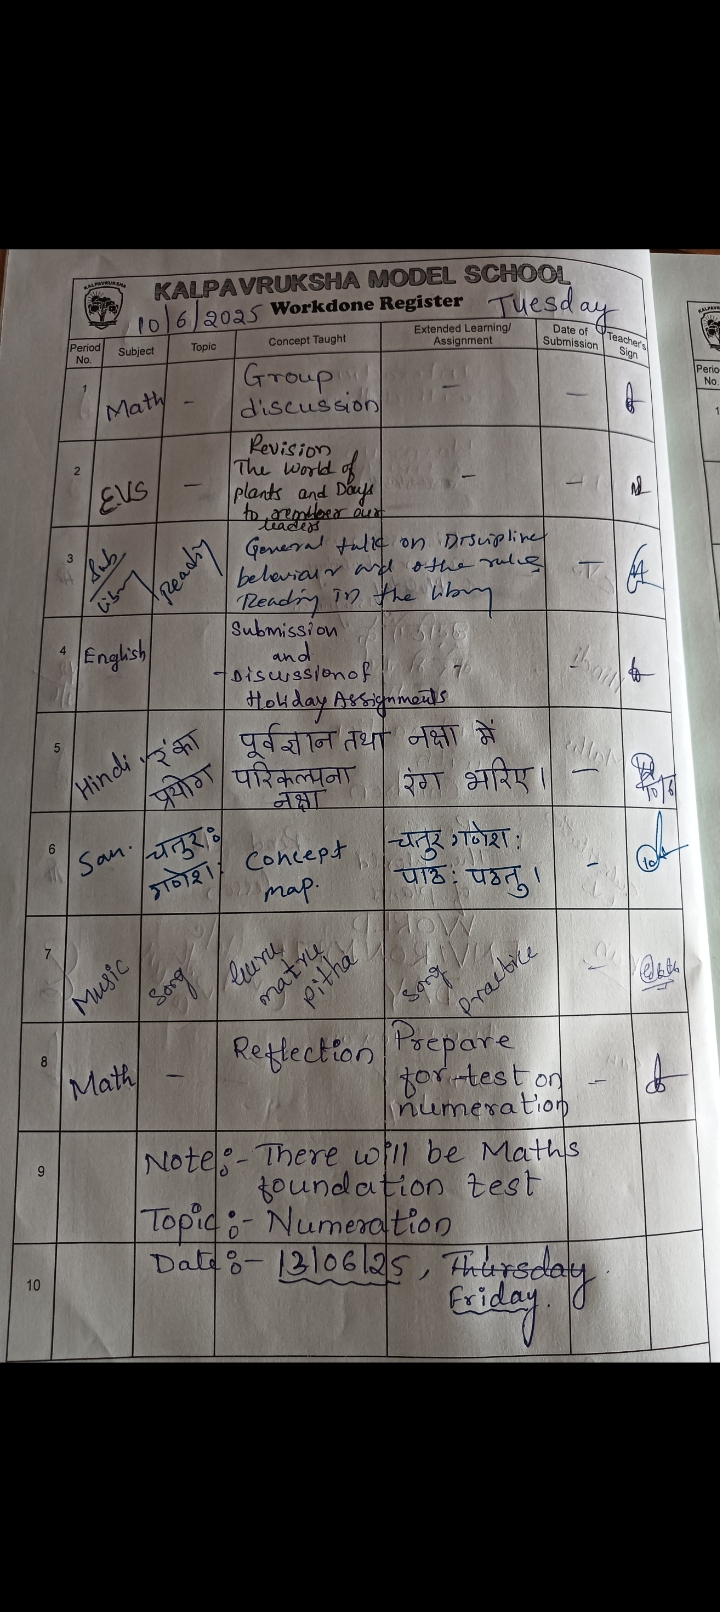 KALPAVRUKSHA
KALPAVRUKSHA MODEL SCHOOL
10/6/2025 Workdone Register Tuesday
Period No. Subject Topic Concept Taught Extended Learning/ Assignment Date of Submission Teacher's Sign
1 Math - Group discussion - -
2 EVS - Revision
The world of
plants and Days
to remember our
leaders - -
3 Sub/Libry Reading General talk on Discipline
behaviour and othe rules
Reading in the libry -
4 English Submission
and
- Discussion of
Holiday Assignments - -
5 Hindi र् का
प्रयोग पूर्वज्ञान तथा
परिकल्पना
नक्षा नक्षा में
रंग भरिए। - 10/6
6 San. चतुरः
गणेशः Concept
map. चतुर गणेशः
पाठः पठतु। -
7 Music Song Guru
matru
pitha song
practice -
8 Math - Reflection Prepare
for test on
numeration -
9 Note:- There will be Maths
foundation test
Topic:- Numeration
10 Date:- 13/06/25, Thursday
Friday.
Perio
No.
1